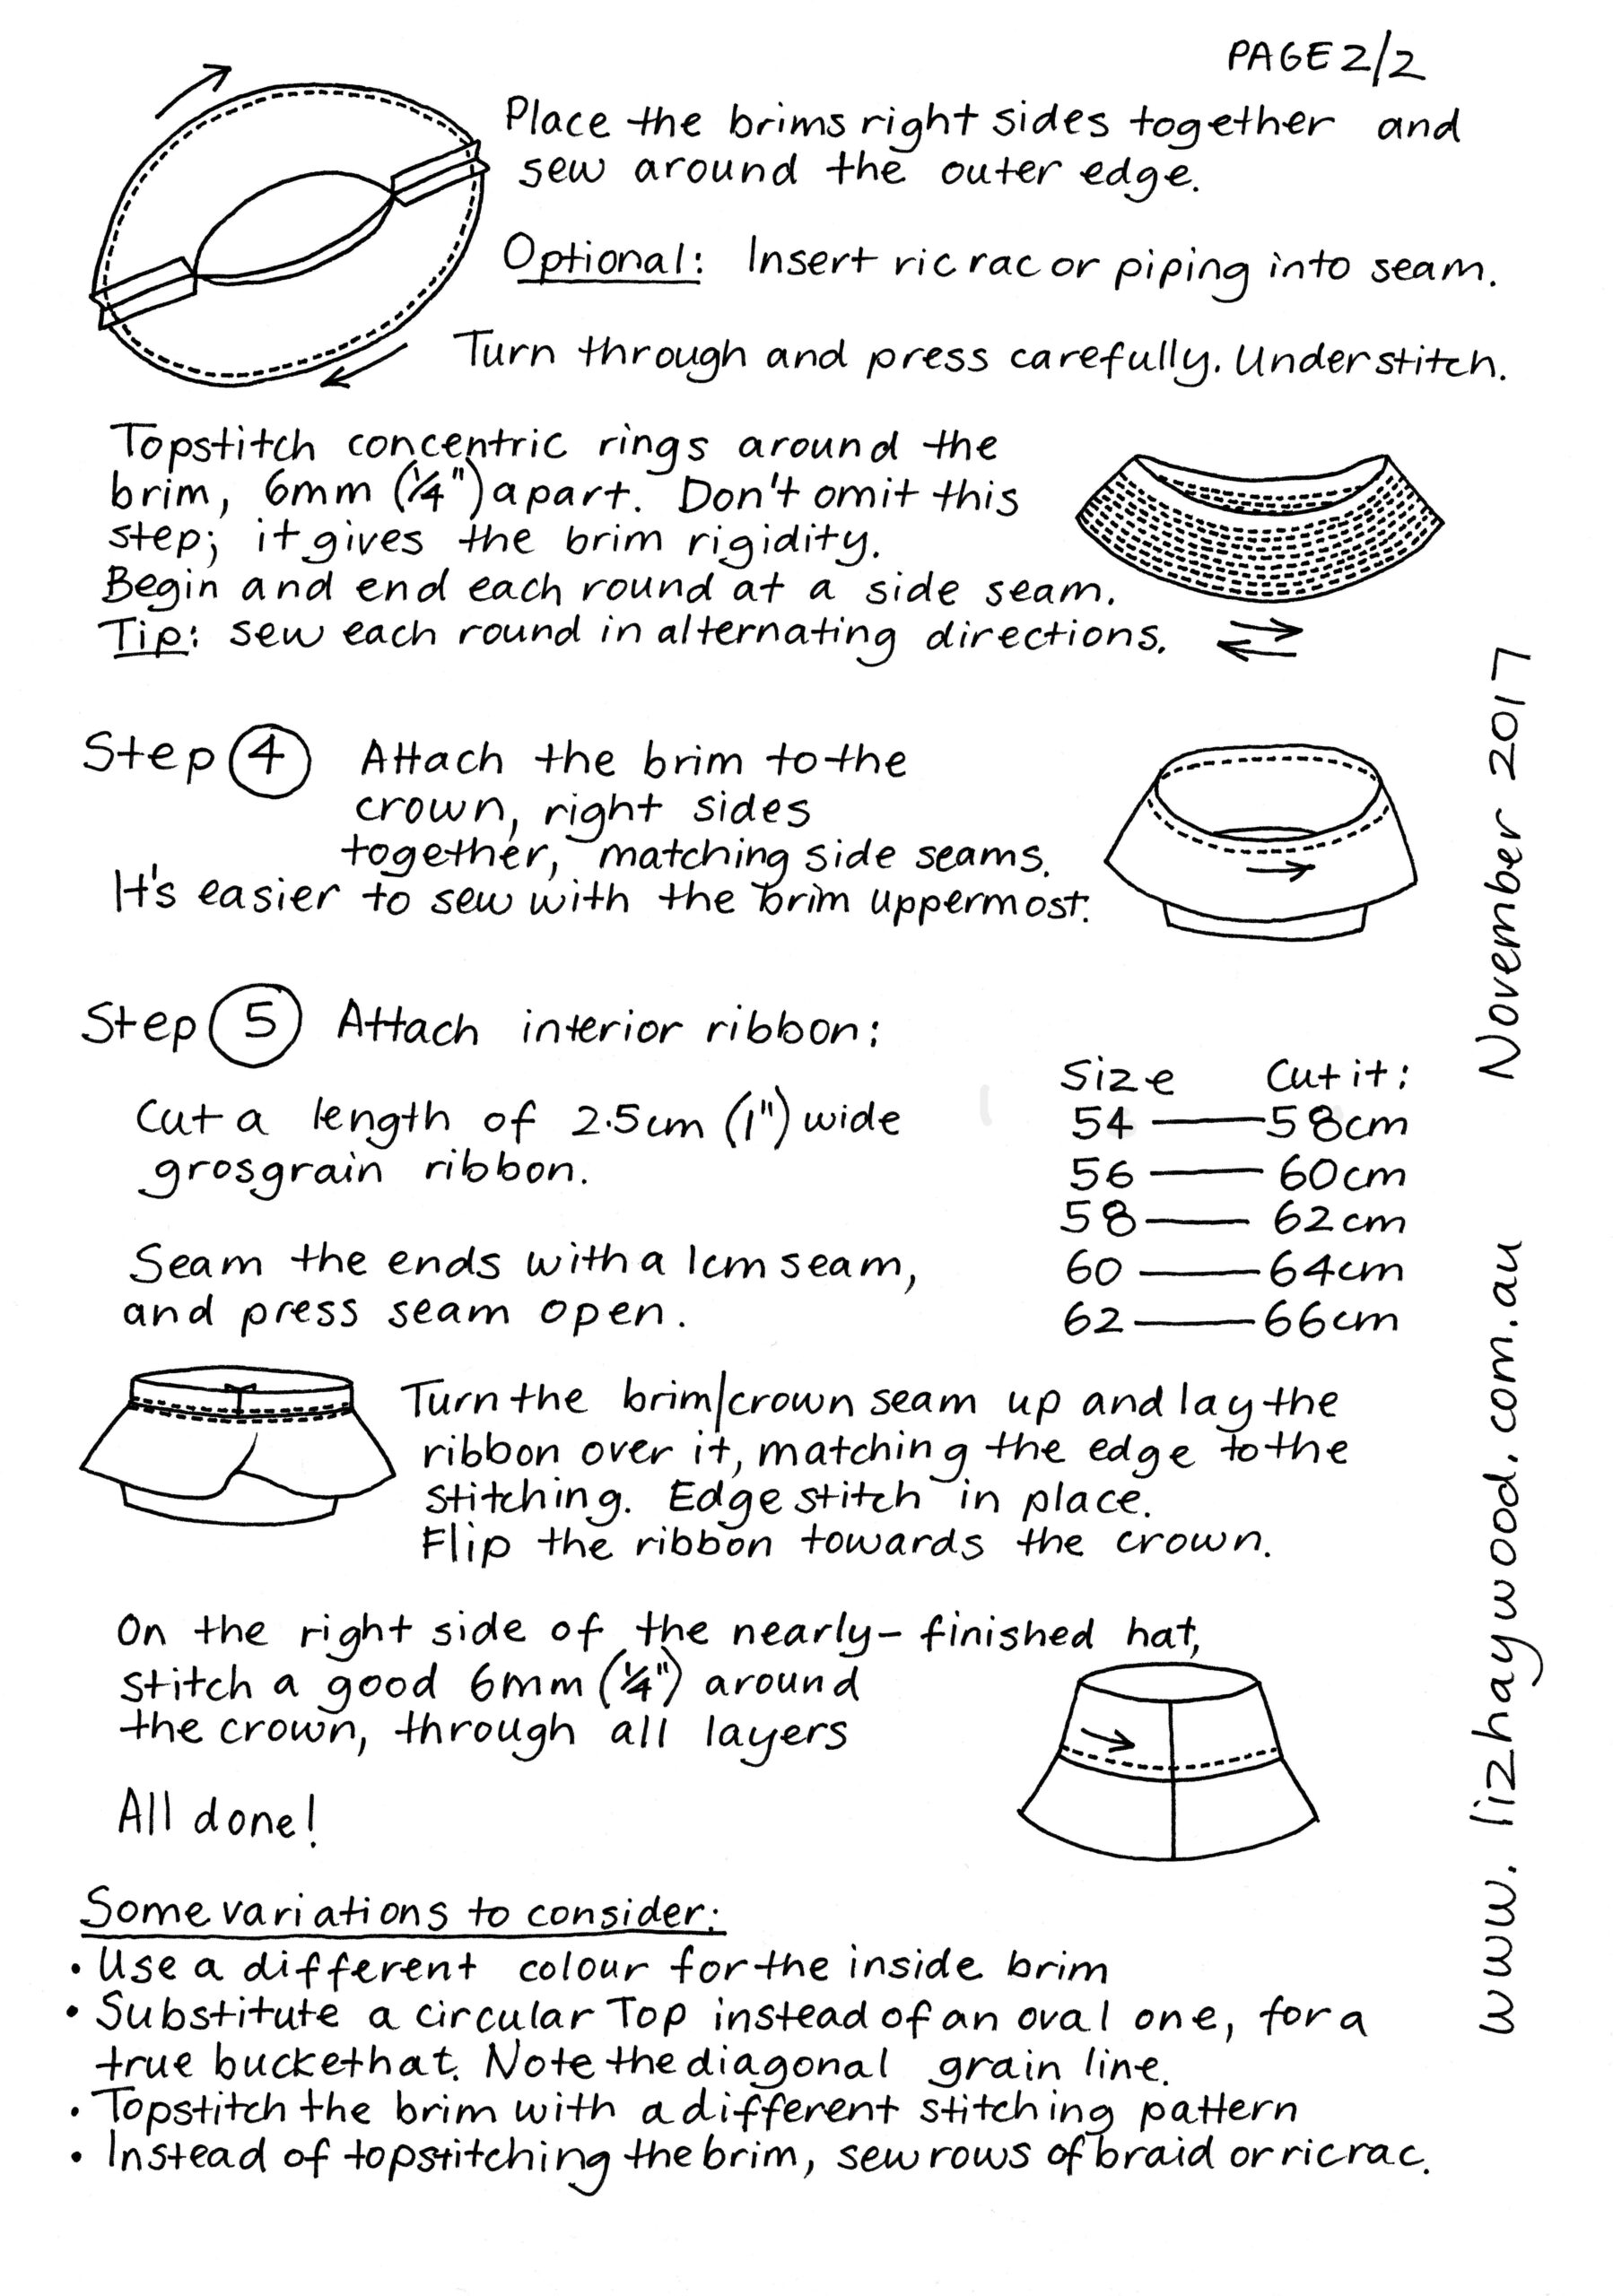 PAGE 2/2
Place the brims right sides together and
sew around the outer edge.
Optional: Insert ric rac or piping into seam.
Turn through and press carefully. Understitch.
Topstitch concentric rings around the
brim, 6mm (1/4") apart. Don't omit this
step; it gives the brim rigidity.
Begin and end each round at a side seam.
Tip: sew each round in alternating directions.
Step 4 Attach the brim to the
crown, right sides
together, matching side seams.
It's easier to sew with the brim uppermost.
Step 5 Attach interior ribbon:
Cut a length of 2.5cm (1") wide
grosgrain ribbon.
Seam the ends with a 1cm seam,
and press seam open.
Size Cut it:
54 — 58cm
56 — 60cm
58 — 62cm
60 — 64cm
62 — 66cm
Turn the brim/crown seam up and lay the
ribbon over it, matching the edge to the
stitching. Edgestitch in place.
Flip the ribbon towards the crown.
On the right side of the nearly-finished hat,
stitch a good 6mm (1/4") around
the crown, through all layers
All done!
Some variations to consider:
• Use a different colour for the inside brim
• Substitute a circular Top instead of an oval one, for a
true buckethat. Note the diagonal grain line.
• Topstitch the brim with a different stitching pattern
• Instead of topstitching the brim, sew rows of braid or ricrac.
www.lizhaywood.com.au November 2017